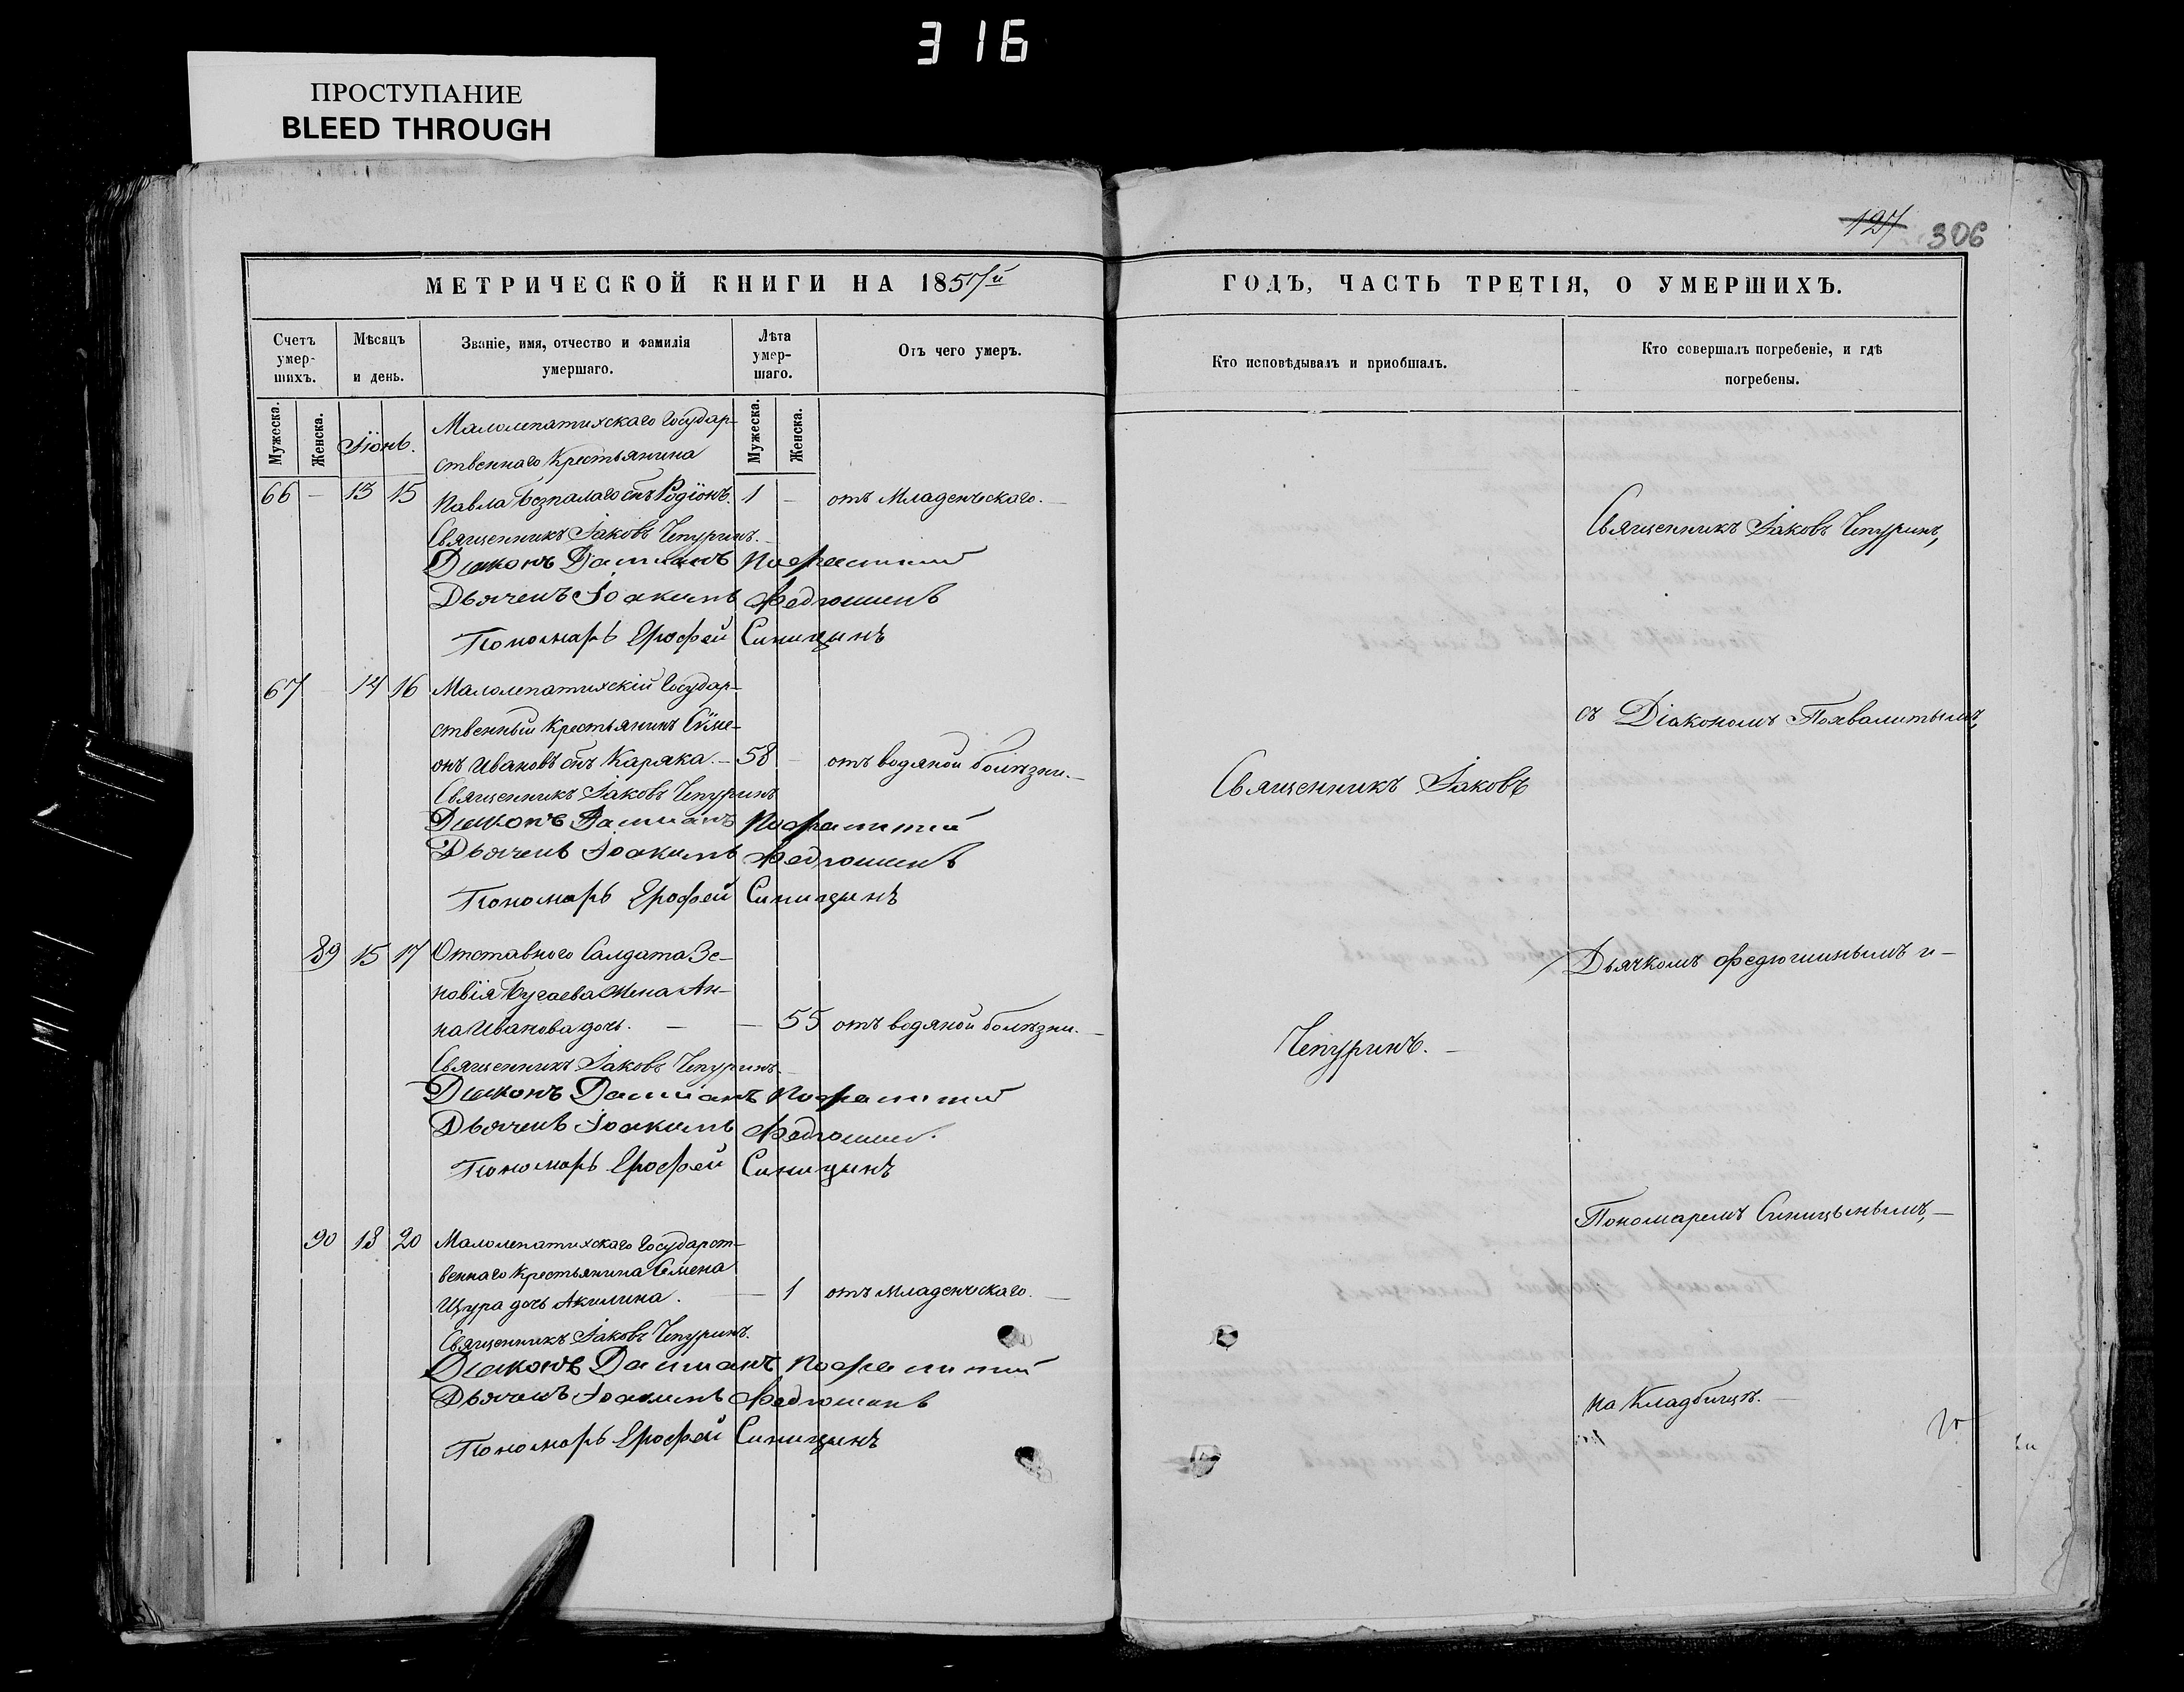 316
ПРОСТУПАНИЕ
BLEED THROUGH
127 306
МЕТРИЧЕСКОЙ КНИГИ НА 1857й
ГОДЪ, ЧАСТЬ ТРЕТІЯ, О УМЕРШИХЪ.
Счетъ умер-шихъ.
Мѣсяцъ и день.
Званіе, имя, отчество и фамилія умершаго.
Лѣта умер-шаго.
Отъ чего умеръ.
Кто исповѣдывалъ и пріобщалъ.
Кто совершалъ погребеніе, и гдѣ погребены.
Мужеска.
Женска.
Іюнь.
Мужеска.
Женска.
Малолепатихскаго Государ-
ственнаго Крестьянина
66 — 13 15 Павла Безпалаго сынъ Родіонъ. 1 — отъ Младенческаго.
Священникъ Іаковъ Чепуринъ.
Діаконъ Даміанъ
Дьячекъ Іоакимъ Федюшинъ
Пономарь Ерофей Синицынъ
67 — 14 16 Малолепатихскій Государ-
ственный крестьянинъ Сѵме-
онъ Ивановъ снъ Каряка. — 58 — отъ водяной болѣзни.
Священникъ Іаковъ Чепуринъ
Діаконъ Даміанъ
Дьячекъ Іоакимъ Федюшинъ
Пономарь Ерофей Синицынъ
89 15 17 Отставного Салдата Зе-
новія Бугаева жена Ан-
на Иванова дочь. — — 55 отъ водяной болѣзни.
Священникъ Іаковъ Чепуринъ
Діаконъ Даміанъ
Дьячекъ Іоакимъ Федюшинъ
Пономарь Ерофей Синицынъ
90 18 20 Малолепатихскаго Государст-
веннаго крестьянина Семена
Щура дочь Акилина. — 1 отъ Младенческаго.
Священникъ Іаковъ Чепуринъ.
Діаконъ Даміанъ
Дьячекъ Іоакимъ Федюшинъ
Пономарь Ерофей Синицынъ
Священникъ Іаковъ
Чепуринъ.
Священникъ Іаковъ Чепуринъ,
съ Діакономъ Похвалитымъ,
Дьячкомъ Федюшинымъ и
Пономаремъ Синицынымъ,
на Кладбищѣ.